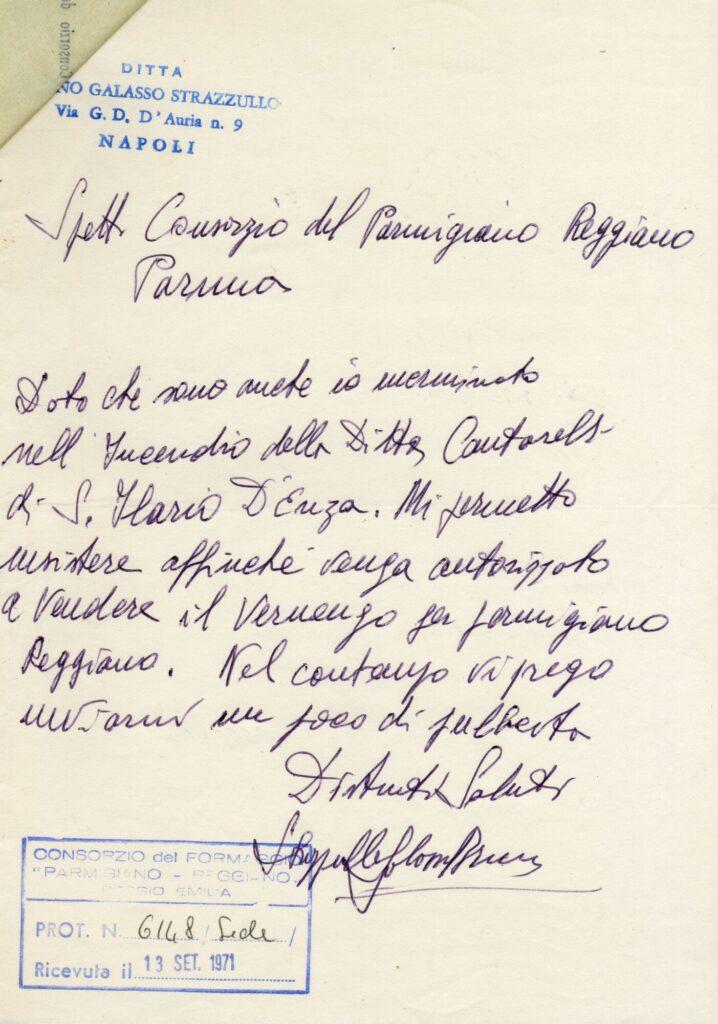 Consorzio de
DITTA
NO GALASSO STRAZZULLO
Via G. D. D'Auria n. 9
NAPOLI
Spett. Consorzio del Parmigiano Reggiano
Parma
Dato che sono anche io
nell Incendio della Ditta Cantarelli
di S. Ilario D'Enza. Mi permetto
insistere affinché venga autorizzato
a vendere il Vernengo per parmigiano
Reggiano. Nel contempo vi prego
inviarmi un poco di
Distinti Saluti
CONSORZIO del FORMAGGIO
"PARMIGIANO - REGGIANO"
REGGIO EMILIA
PROT. N. 6148 / Sede /
Ricevuta il 13 SET. 1971